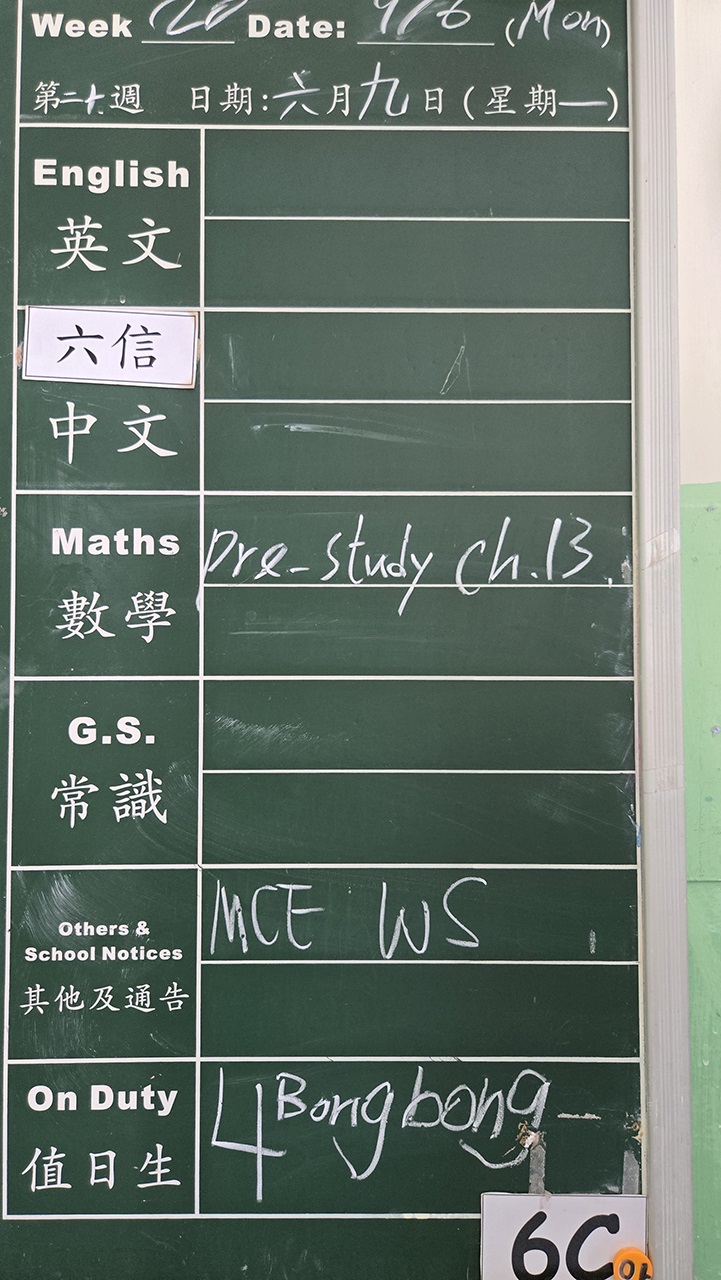 Week 20 Date: 9/6 (Mon)
第二十週 日期:六月九日(星期一)
English
英文
六信
中文
Maths Pre-study Ch.13
數學
G.S.
常識
Others &
School Notices
MCE WS
其他及通告
On Duty
值日生
4 Bongbong
6C